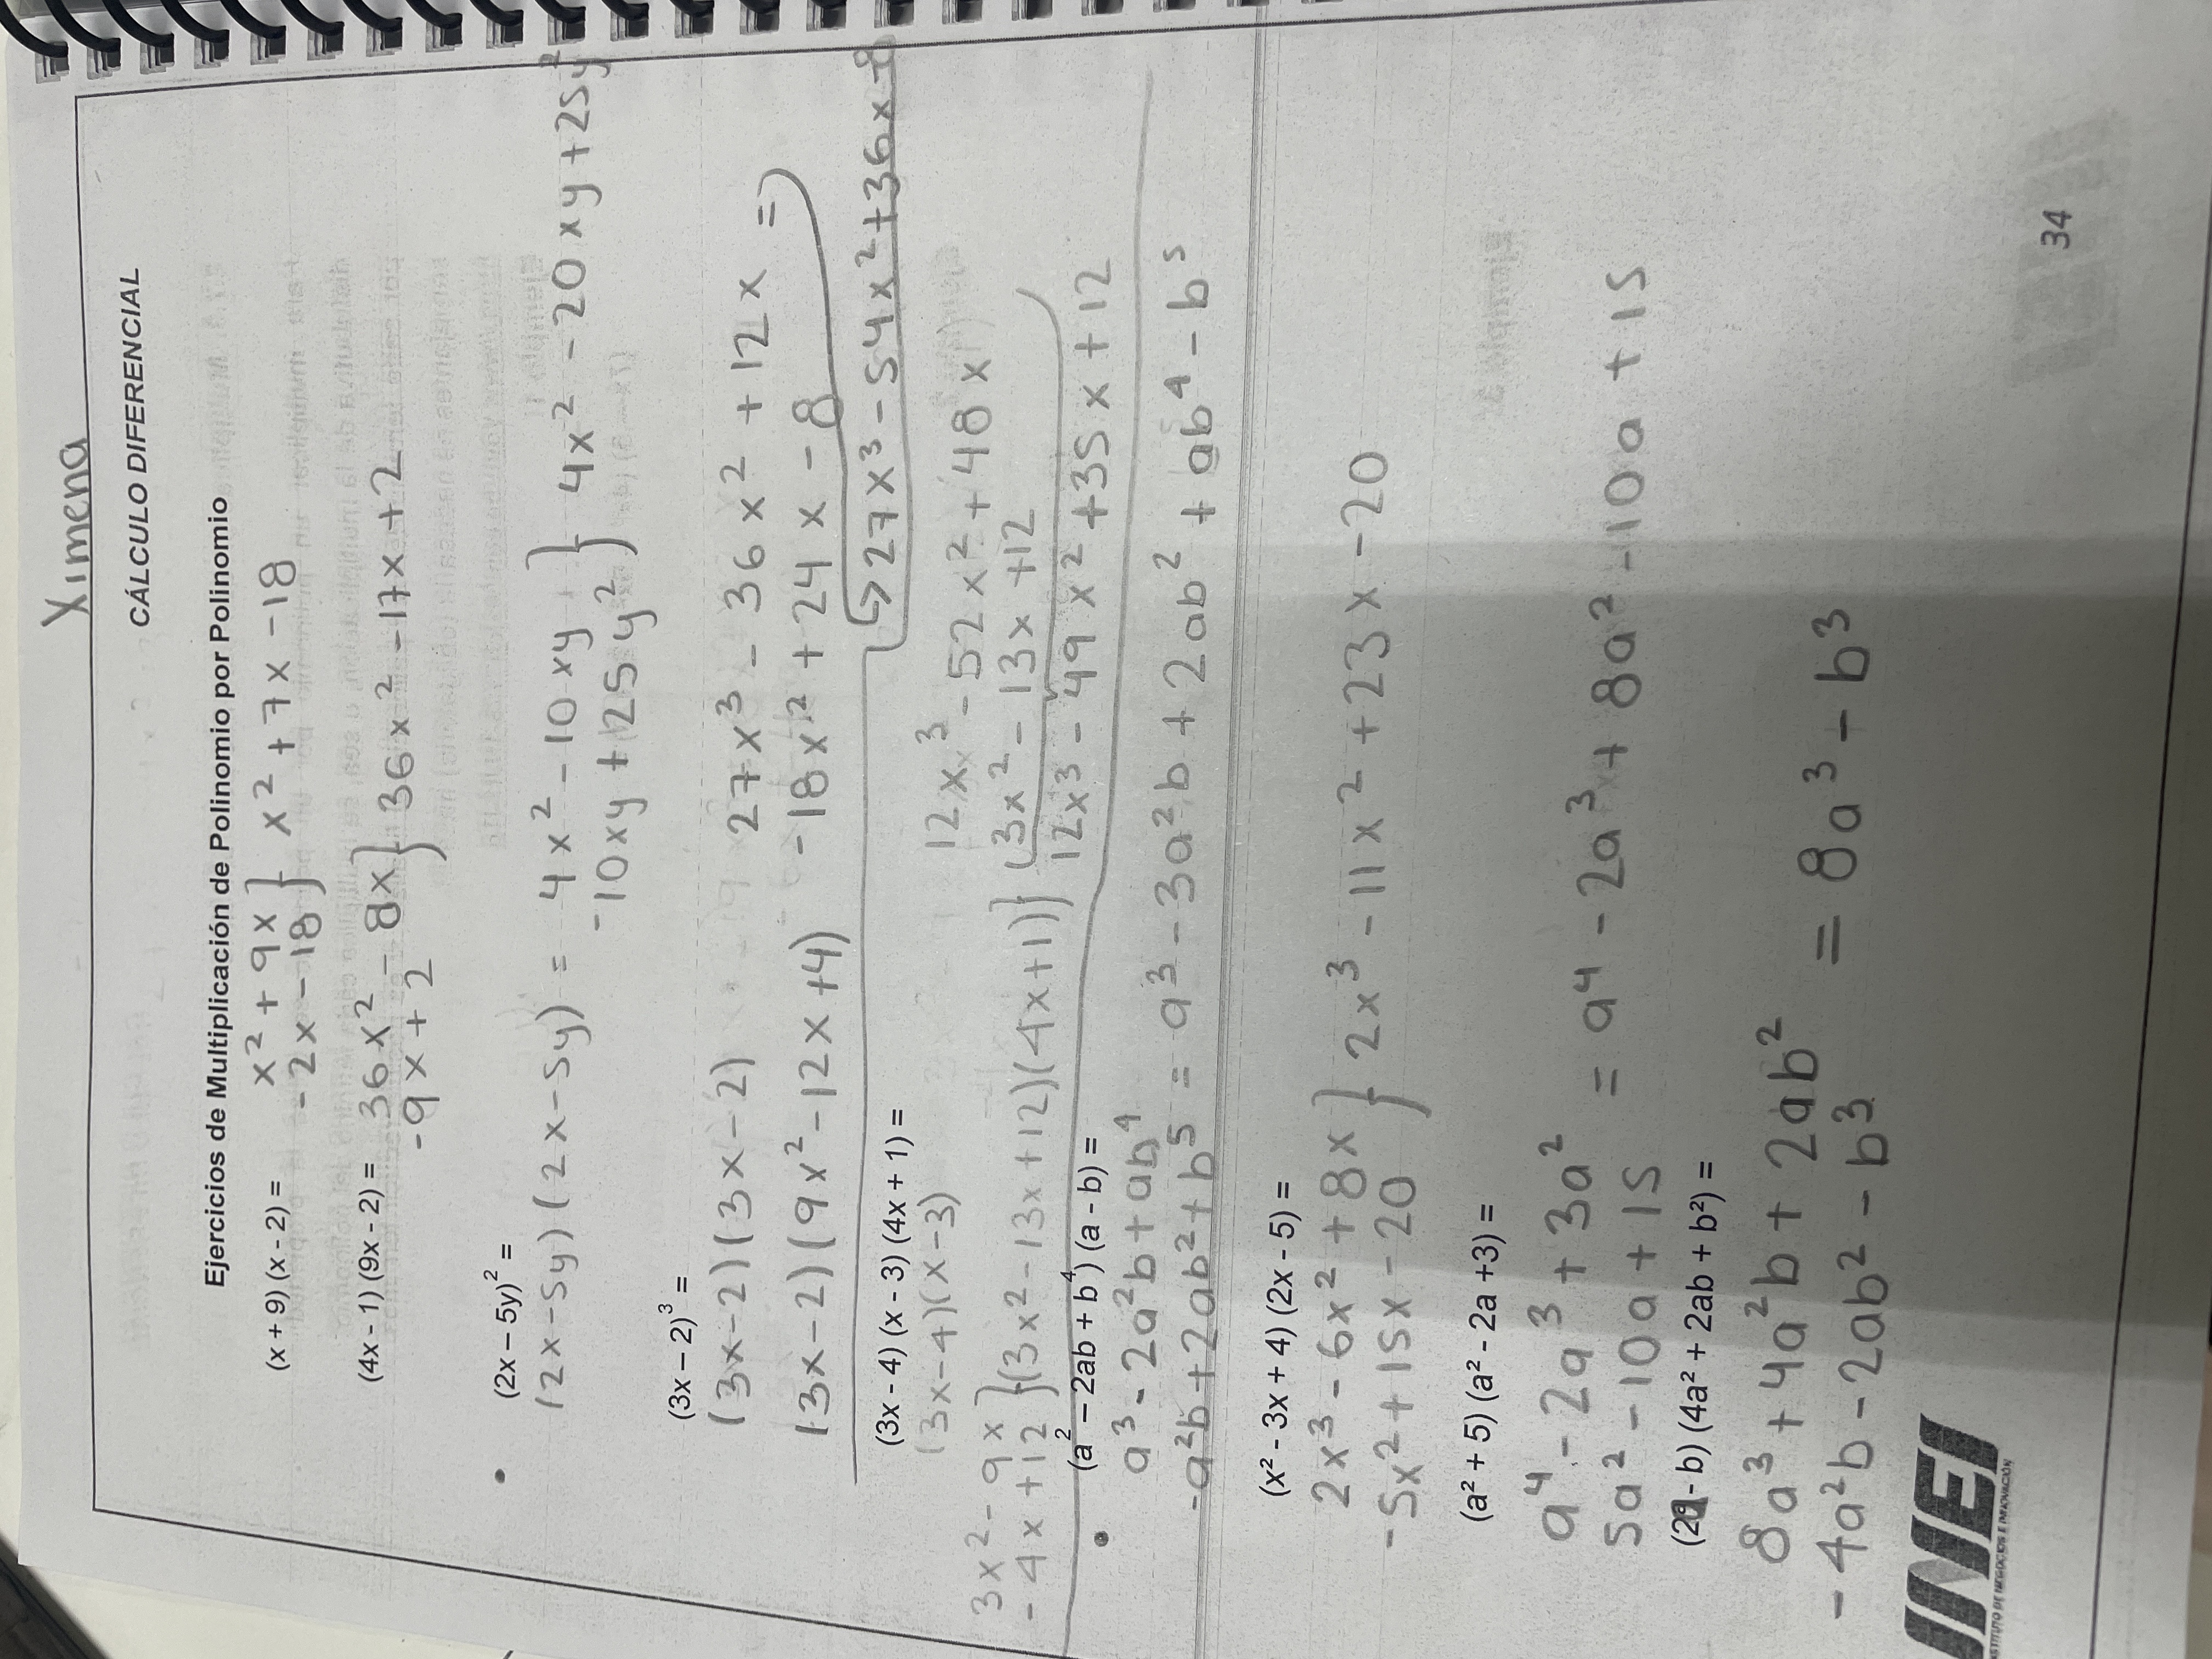 Ximena
CÁLCULO DIFERENCIAL
Ejercicios de Multiplicación de Polinomio por Polinomio
(x + 9) (x - 2) = x² + 9x } x² + 7x - 18
- 2x - 18 }
(4x - 1) (9x - 2) = 36x² - 8x } 36x² - 17x + 2
-9x + 2 }
(2x – 5y)² =
(2x-5y)(2x-5y) = 4x² - 10xy } 4x² - 20xy + 25y²
-10xy + 25y² }
(3x – 2)³ =
(3x-2)(3x-2) 27x³ - 36x² + 12x =)
(3x-2)(9x²-12x+4) -18x² + 24x - 8
↳ 27x³ - 54x² + 36x - 8
(3x - 4) (x - 3) (4x + 1) =
(3x-4)(x-3) 12x³ - 52x² + 48x
3x² - 9x } (3x² - 13x + 12)(4x+1) } 3x² - 13x + 12
- 4x + 12 } 12x³ - 49x² + 35x + 12
(a² – 2ab + b⁴) (a - b) =
a³ - 2a²b + ab⁴
-a²b + 2ab² + b⁵ = a³ - 3a²b + 2ab² + ab⁴ - b⁵
(x² - 3x + 4) (2x - 5) =
2x³ - 6x² + 8x } 2x³ - 11x² + 23x - 20
- 5x² + 15x - 20 }
(a² + 5) (a² - 2a +3) =
a⁴ - 2a³ + 3a² = a⁴ - 2a³ + 8a² - 10a + 15
5a² - 10a + 15
(2a - b) (4a² + 2ab + b²) =
8a³ + 4a²b + 2ab² = 8a³ - b³
- 4a²b - 2ab² - b³
INEI
INSTITUTO DE NEGOCIOS E INNOVACIÓN
34